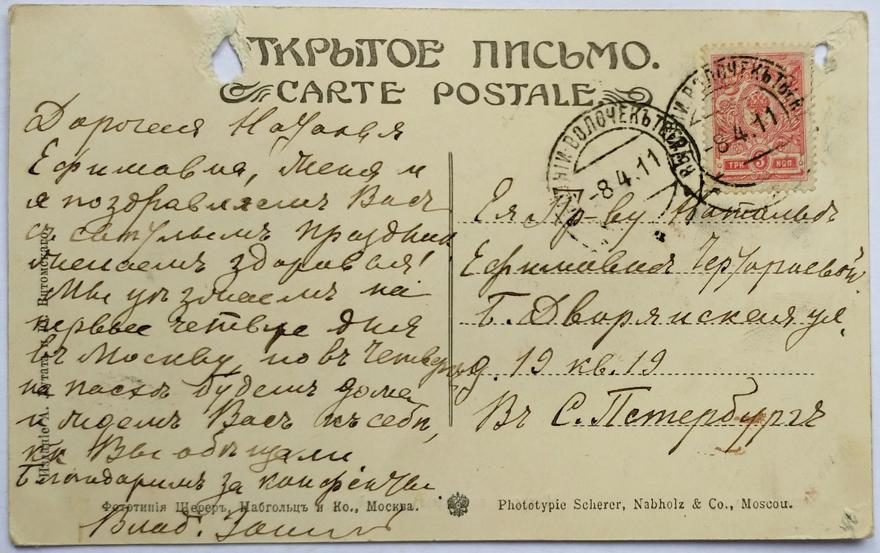 ОТКРЫТОЕ ПИСЬМО.
CARTE POSTALE.
ВЫШНІЙ-ВОЛОЧЕКЪ
-8.4.11
ВОЛОЧЕКЪ
-8.4.11
ТРИ 3 КОП
Дорогая Наталья
Ефимовна, Женя и
я поздравляемъ Васъ
съ свѣтлымъ праздник
желаемъ здоровья!
Мы уѣзжаемъ на
первые четыре дня
въ Москву, но въ четвергъ
на пасхѣ будемъ дома
и ждемъ Васъ къ себѣ,
кк Вы обѣщали
Благодаримъ за конфекты
Влад.
Ея Пр-ву Натальѣ
Ефимовнѣ
Б. Дворянская ул.
д. 19 кв. 19
Въ С. Петербургъ
Изданіе А.
Фототипія Шереръ, Набгольцъ и Ко., Москва.
Phototypie Scherer, Nabholz & Co., Moscou.